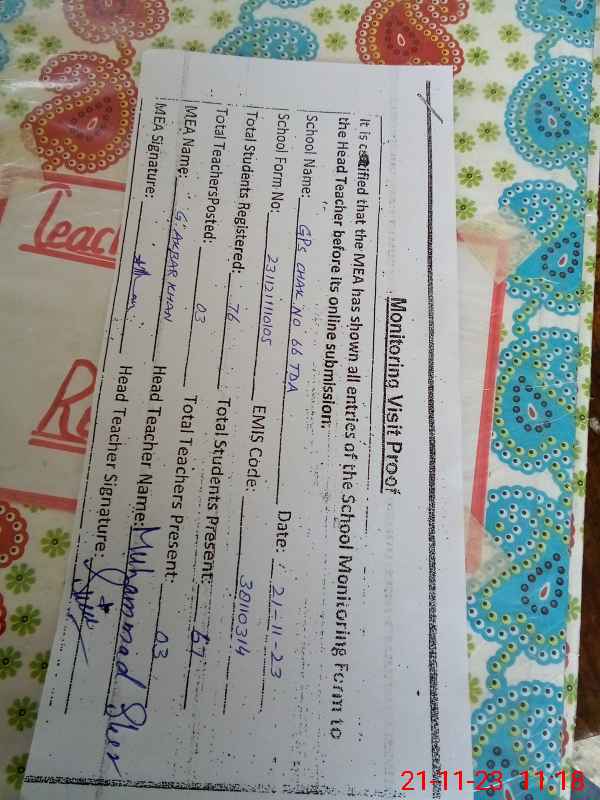 Monitoring Visit Proof
It is certified that the MEA has shown all entries of the School Monitoring Form to
the Head Teacher before its online submission.
School Name: GPS CHAK NO 66 TDA Date: 21-11-23
School Form No: 231121110105 EMIS Code: 38110314
Total Students Registered: 76 Total Students Present: 67
Total TeachersPosted: 03 Total Teachers Present: 03
MEA Name: G.AKBAR KHAN Head Teacher Name: Muhammad Sher
MEA Signature: Head Teacher Signature:
Teac
Re
21-11-23 11:18